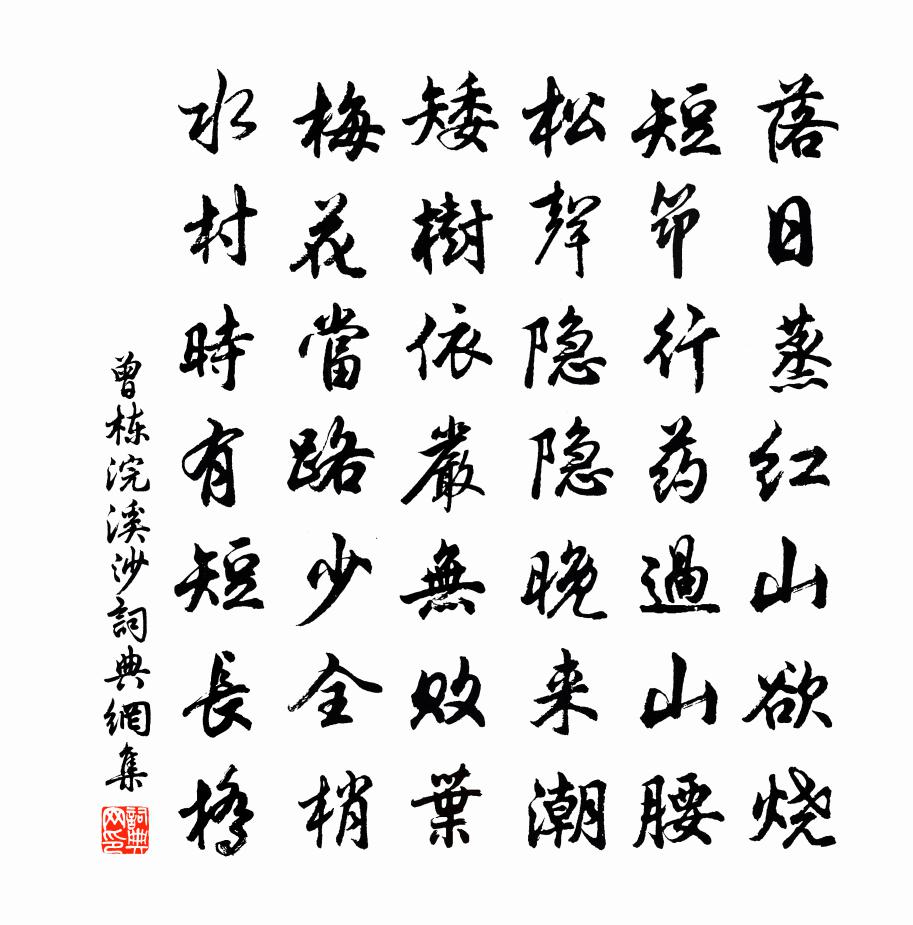 落日蒸红山欲烧
短筇行药過山腰
松聲隐隐晚来潮
矮樹依嚴無败葉
梅花當路少全梢
水村時有短長橋
曾栋浣溪沙詞典網集
詞典网印